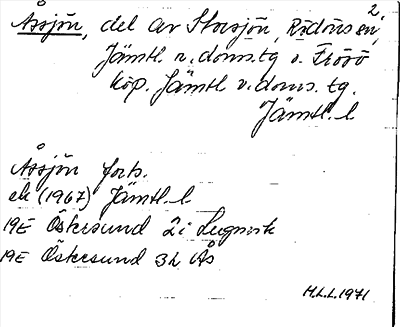 2.
Åssjön, del av Storsjön, Rödöns sn,
Jämtl. n. doms.tg o. Frösö
köp. Jämtl v. doms. tg.
Jämtl. l
Åssjön forts.
ek (1967) Jämtl. l
19E Östersund 2i Lugnvik
19E Östersund 3h Ås
H.L.L. 1971